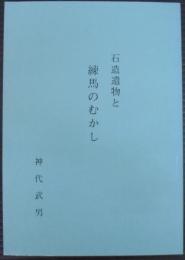 石造遺物と
練馬のむかし
神代武男